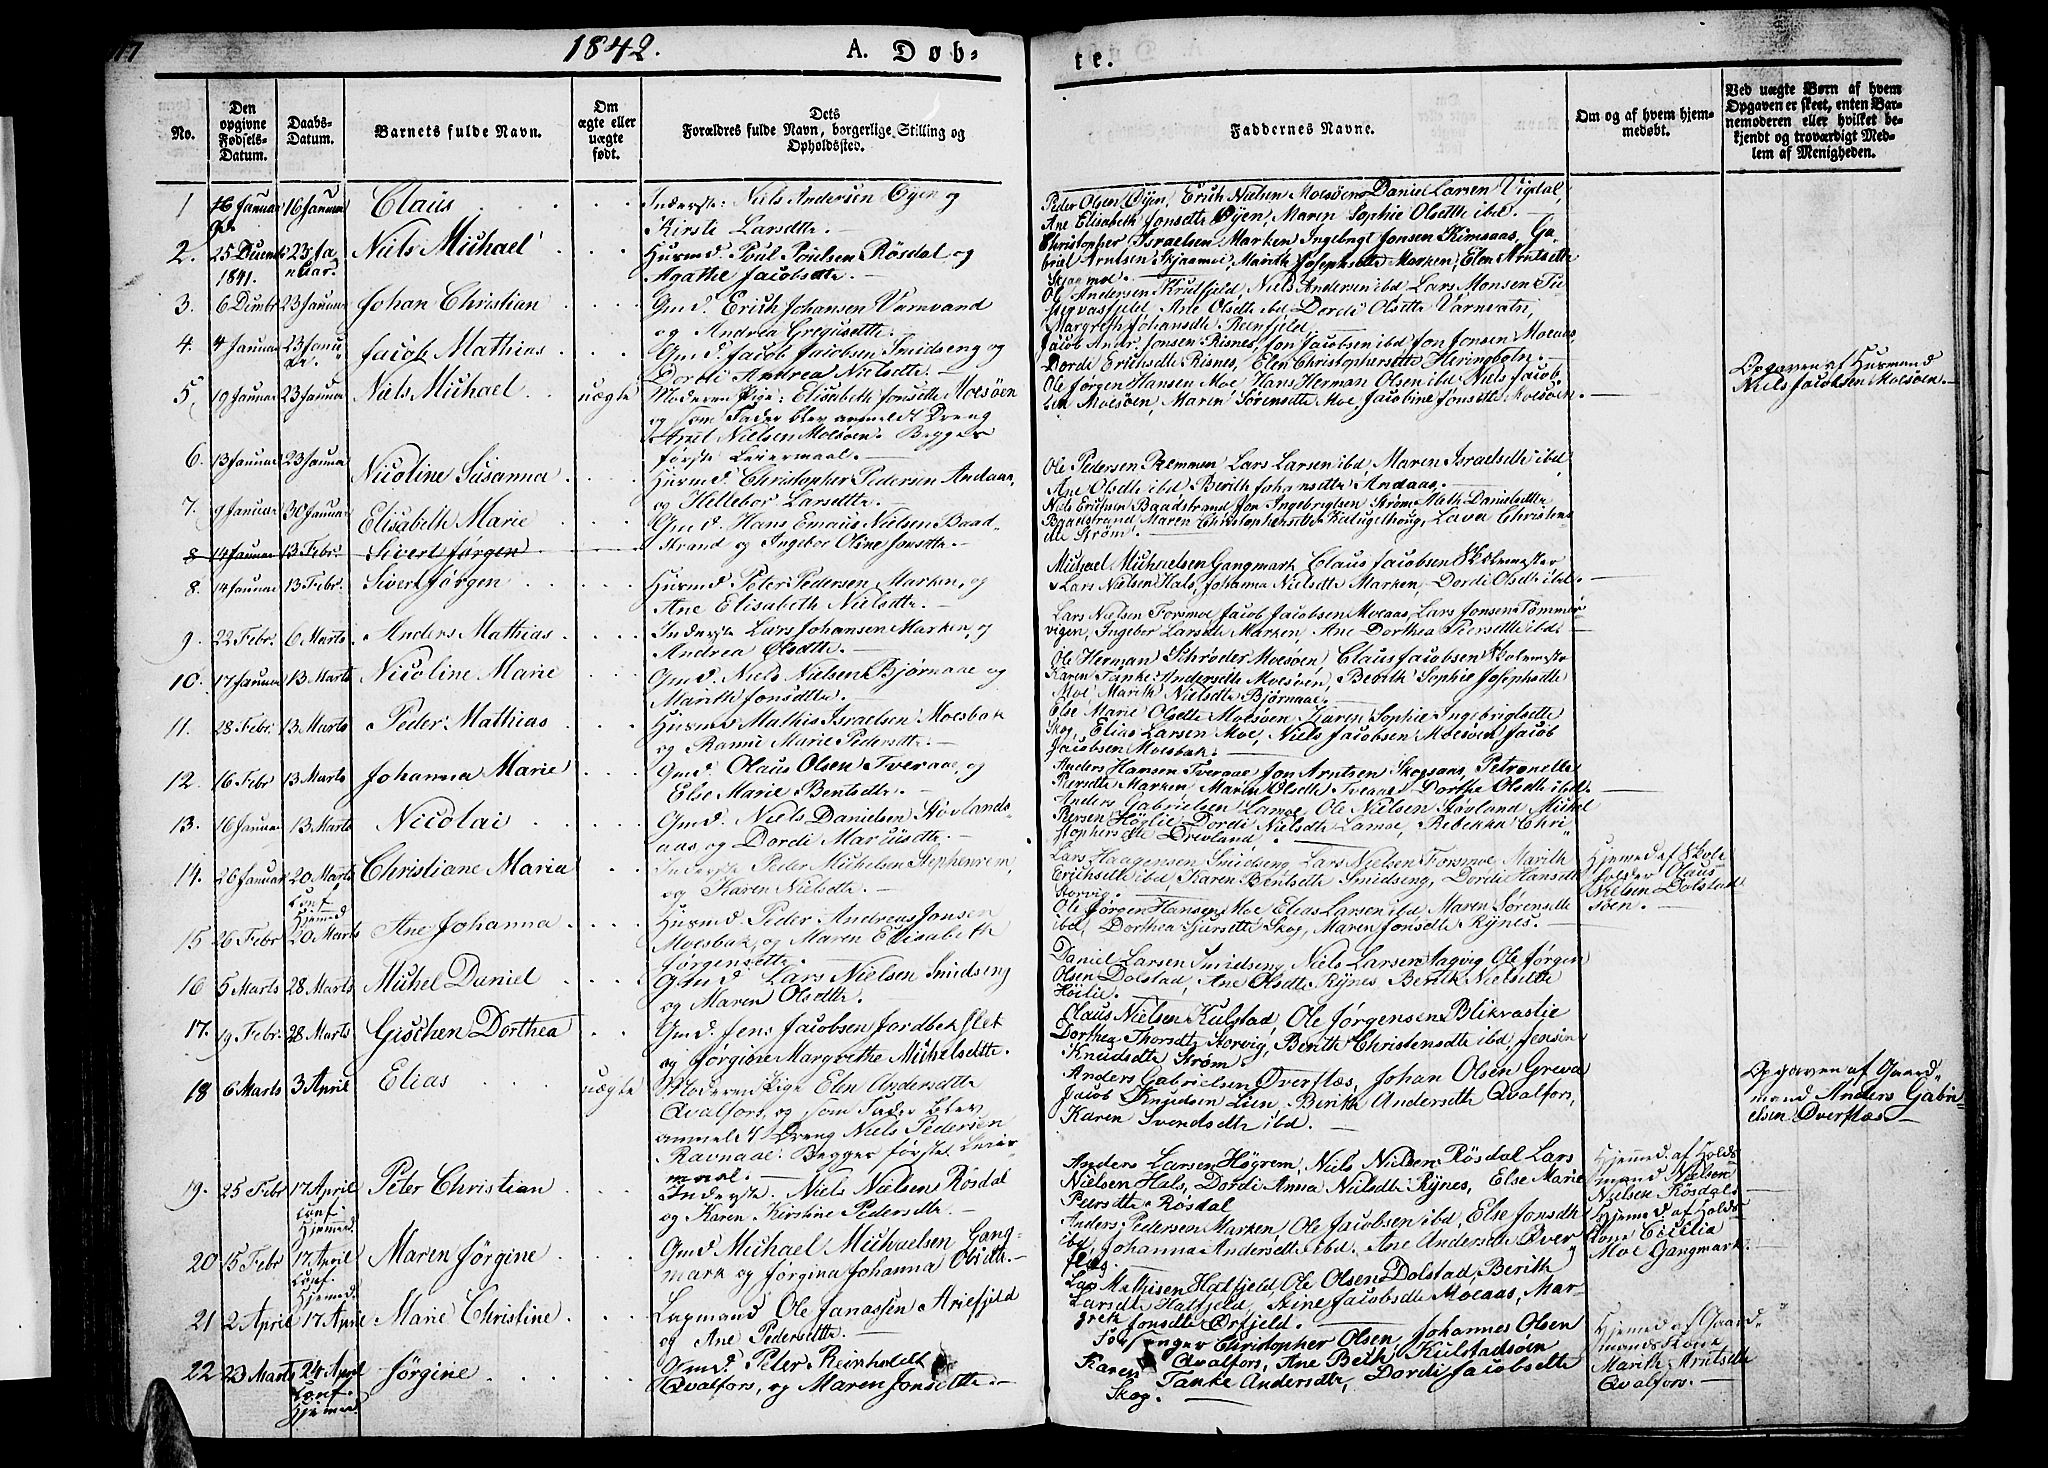 1842.
A. Døb-
te.
No.
Den opgivne Fødsels-Datum.
Daabs-Datum.
Barnets fulde Navn.
Om ægte eller uægte født.
Dets Forældres fulde Navn, borgerlige Stilling og Opholdssted.
Faddernes Navne.
Om og af hvem hjem-medøbt.
Ved uægte Børn af hvem Opgaven er skeet, enten Bar-nemoderen eller hvilket be-kjendt og troværdigt Med-lem af Menigheden.
1 Januar 16 Januar Claus
Inderst: Niels Andersen Øyen og
Kirsti Larsdtr.
Peder Olsen Øyen, Erich Nielsen Moesøen Daniel Larsen Vigdal,
Ane Elisabeth Jonsdtr Øyen, Maren Sophie Olsdtr ibd.
2. 25 Decemb 1841. 23 Januar. Niels Michael
Huusmd. Poul Poulsen Røsdal og
Agathe Jacobsdtr.
Christopher Israelsen Marken Ingebrigt Jonsen Kimsaas, Ga-
briel Arntsen Skjaamoe, Marith Josephsdtr Marken, Elen Arntsdtr
Skjaamoe.
3. 6 Dcmbr 23 Januar Johan Christian
Gmd. Erich Johansen Varnvand
og Andrea Gregusdtr.
Ole Andersen Krutfjeld, Niels Andersen ibd Lars Monsen
Ane Olsdtr ibd Dordi Olsdtr Varnvatn,
Margreth Johansdtr Reinfjeld.
4. 4 Januar 23 Januar. Jacob Mathias
Gmd. Jacob Jacobsen Smidseng og
Dordi Andrea Nielsdtr.
Jacob Andr. Jonsen Risnes, Jon Jacobsen ibd Jon Jonsen Moeaas,
Dordi Erichsdtr Risnes, Elen Christophersdtr Heringbotn.
5. 19 Januar 23 Januar Niels Michael. uægte
Moderen Pige: Elisabeth Jonsdtr Moesøen
og som Fader blev anmeldt Dreng
Arnt Nielsen Moesøen. Begges
første Leiermaal.
Ole Jørgen Hansen Moe, Hans Herman Olsen ibd, Niels Jacob-
sen Moesøen, Maren Sørensdtr Moe, Jacobine Jonsdtr Moesøen.
Opgaven af Husmand
Niels Jacobsen Moesøen.
6. 13 Januar 23 Januar Nicoline Susanna
Husmd. Christopher Pedersen Andaas,
og Hellebor Larsdtr.
Ole Pedersen Remmen Lars Larsen ibd Maren Israelsdtr ibd
Ane Olsdtr ibd Berith Johansdtr Andaas.
7. 9 Januar 30 Januar Elisabeth Marie
Gmd. Hans Emaus Nielsen Baad-
strand og Ingebor Oline Jonsdtr.
Niels Erichsen Baadstrand Jon Ingebrigtsen Strøm Meth Danielsdtr
Baadstrand Maren Christophersdtr Lava Christens-
dtr Strøm.
8 14 Januar 13 Febr. Sivert Jørgen
8. 14 Januar 13 Febr. Sivert Jørgen
Husmd. Peter Pedersen Marken, og
Ane Elisabeth Nielsdtr.
Michael Michaelsen Gangmark Claus Jacobsen Skolemester
Lars Nielsen Hals, Johanna Nielsdtr Marken, Dordi Olsdtr ibd.
9. 22 Febr. 6 Marts Anders Mathias
Inderste Lars Johansen Marken, og
Andrea Olsdtr.
Lars Nielsen Forsmoe, Jacob Jacobsen Moeaas, Lars Jonsen Tømmer-
vigen, Ingebor Larsdtr Marken, Ane Dorthea Peersdtr ibd.
10. 17 Januar 13 Marts Nicoline Marie
Gmd. Niels Nielsen Bjørnaae og
Marith Jonsdtr.
Ole Herman Schrøder Moesøen, Claus Jacobsen Skolemester
Karen Tanke Andersdtr Moesøen, Berith Sophie Josephsdtr
Moe Marith Nielsdtr Bjørnaae.
11. 28 Febr. 13 Marts Peder Mathias
Husmd Mathis Israelsen Moesbak
og Marie Pedersdtr.
Else Marie Olsdtr Moesøen, Karen Sophie Ingebrigtsdtr
Skog, Elias Larsen Moe, Niels Jacobsen Moesøen Jacob
Jacobsen Moesbak.
12. 16 Febr 13 Marts Johanna Marie
Gmd. Olaus Olsen Tveraae, og
Else Marie Bentsdtr.
Anders Hansen Tveraae Jon Arntsen Skogsaas, Petronelle
Peersdtr Marken, Maren Olsdtr Tveraae, Dorthe Olsdtr ibd.
13. 16 Januar 13 Marts Nicolai
Gmd. Niels Danielsen Støvlands-
aas og Dordi Marcusdtr.
Anders Gabrielsen Lamoe, Ole Nielsen Støvland Michel
Persen Høilie, Dordi Nielsdtr Lamoe, Rebekka Chri-
stophersdtr Drevland.
14. 26 Januar 20 Marts Conf. Hjemmed Christiane Maria
Inderste Peder Michelsen Stephenrem,
og Karen Nielsdtr.
Lars Haagensen Smidseng Lars Nielsen Forsmoe Marith
Erichsdtr ibd, Karen Bentsdtr Smidseng, Dordi Hansdtr
Storvig.
Hjemmed af Skole
holder Olaus
Nielsen Dolstad-
søen.
15 26 Febr 20 Marts Ane Johanna
Husmd. Peder Andreas Jonsen
Moesbak, og Maren Elisabeth
Jørgensdtr.
Ole Jørgen Hansen Moe Elias Larsen ibd Maren Sørensdtr
ibd, Dorthea Sjursdtr Skog, Maren Jonsdtr Rynes.
16 5 Marts 28 Marts Michel Daniel
Gmd. Lars Nielsen Smidseng
og Maren Olsdtr.
Daniel Larsen Smidseng, Niels Larsen Fagvig Ole Jørgen
Olsen Dolstad, Ane Olsdtr Rynes, Berith Nielsdtr
Høilie.
17. 19 Febr. 28 Marts Gischen Dorthea
Gmd. Jens Jacobsen Jordbekslet
og Jørgine Margrethe Michelsdtr.
Claus Nielsen Kulstad, Ole Jørgensen Blikrastie
Dorthea Thorsdtr Storvig, Berith Christensdtr ibd, Jensine
Knudsdtr Strøm.
18 6 Marts 3 April Elias uægte
Moderen Pige Elen Andersdtr
Qvalfors, og som Fader blev
anmeldt Dreng Niels Pedersen
Ravnaae: Begges første Leier-
maal.
Anders Gabrielsen Øverstæs, Johan Olsen Greva
Jacob Knudsen Lien, Berith Andersdtr Qvalfors,
Karen Svendsdtr ibd.
Opgaven af Gaard-
mand Anders Gabri-
elsen Øverstæs
19. 25 Febr 17 April Conf. Hjemmed. Peter Christian
Inderste. Niels Nielsen Røsdal
og Karen Kirstine Pedersdtr.
Anders Larsen Høgrem, Niels Nielsen Røsdal Lars
Nielsen Hals, Dordi Anna Nielsdtr Rynes, Else Marie
Peersdtr Røsdal
Hjemmed. af Holds-
mand Nielsen
Nielsen Røsdals
20 15 Febr 17 April Conf. Hjemmed. Maren Jørgine
Gmd Michael Michaelsen Gang-
mark og Jørgina Johanna Olsdtr.
Anders Pedersen Marken, Ole Jacobsen ibd, Else Jonsdtr
ibd, Johanna Andersdtr ibd. Ane Andersdtr Øver
Hjemmed af Holds-
Kone Cecilia
Moe Gangmark.
21 2 April 17 April Marie Christine
Lapmand Ole Janassen Ariefjeld
og Ane Pedersdtr.
Lars Mathisen Hatfjeld, Ole Olsen Dolstad, Berith
Larsdtr Hatfjeld, Stine Jacobsdtr Moeaas, Mar-
greth Jonsdtr Ørfjeld.
22 23 Marts 24 April Conf. Hjemmed. Jørgine
Gmd. Peter Reinholdt
Qvalfors, og Maren Jonsdtr.
Forsanger Christopher Olsen, Johannes Olsen
Qvalfors, Ane Beth Kulstadsøen
Karen Tanke Andersdtr, Dordi Jacobsdtr
Skog.
Hjemmed af Gaard-
mands Kone
Marith Arntsdtr
Qvalfors.